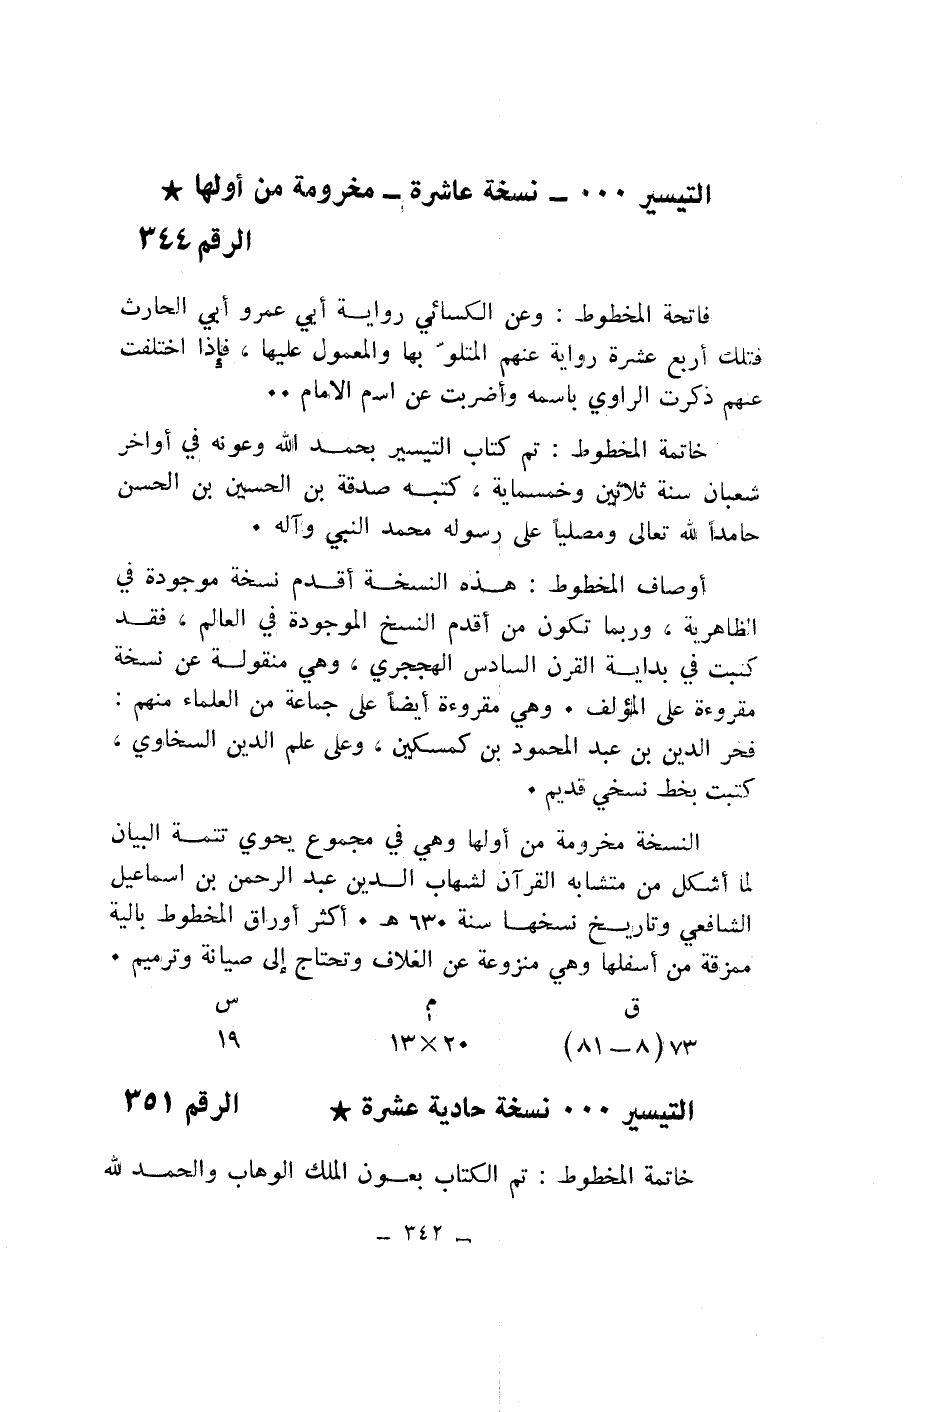 التيسير ٠٠٠ ـ نسخة عاشرة ـ مخرومة من أولها ★
الرقم ٣٤٤
فاتحة المخطوط : وعن الكسائي روايـــة أبي عمرو أبي الحارث
فتلك أربع عشرة رواية عنهم المتلوّ بها والمعمول عليها ، فإذا اختلفت
عنهم ذكرت الراوي باسمه وأضربت عن اسم الامام ٠٠
خاتمة المخطوط : تم كتاب التيسير بحمــد الله وعونه في أواخر
شعبان سنة ثلاثين وخمسماية ، كتبـــه صدقة بن الحسين بن الحسن
حامداً لله تعالى ومصلياً على رسوله محمد النبي وآله ٠
أوصاف المخطوط : هــذه النسخــة أقــدم نسخة موجودة في
الظاهرية ، وربما تكون من أقدم النسخ الموجودة في العالم ، فقــد
كتبت في بدايــة القرن السادس الهجري ، وهي منقولــة عن نسخة
مقروءة على المؤلف ٠ وهي مقروءة أيضاً على جماعة من العلماء منهم :
فخر الدين بن عبد المحمود بن كمسكين ، وعلى علم الدين السخاوي ،
كتبت بخط نسخي قديم ٠
النسخة مخرومة من أولها وهي في مجموع يحوي تتمــة البيان
لما أشكل من متشابه القرآن لشهاب الــدين عبد الرحمن بن اسماعيل
الشافعي وتاريــخ نسخهــا سنة ٦٣٠ هـ ٠ أكثر أوراق المخطوط بالية
ممزقة من أسفلها وهي منزوعة عن الغلاف وتحتاج إلى صيانة وترميم ٠
ق م س
٧٣(٨ــ٨١) ٢٠×١٣ ١٩
التيسير ٠٠٠ نسخة حادية عشرة ★ الرقم ٣٥١
خاتمة المخطوط : تم الكتاب بعــون الملك الوهاب والحمــد لله
ـ ٣٤٢ ـ